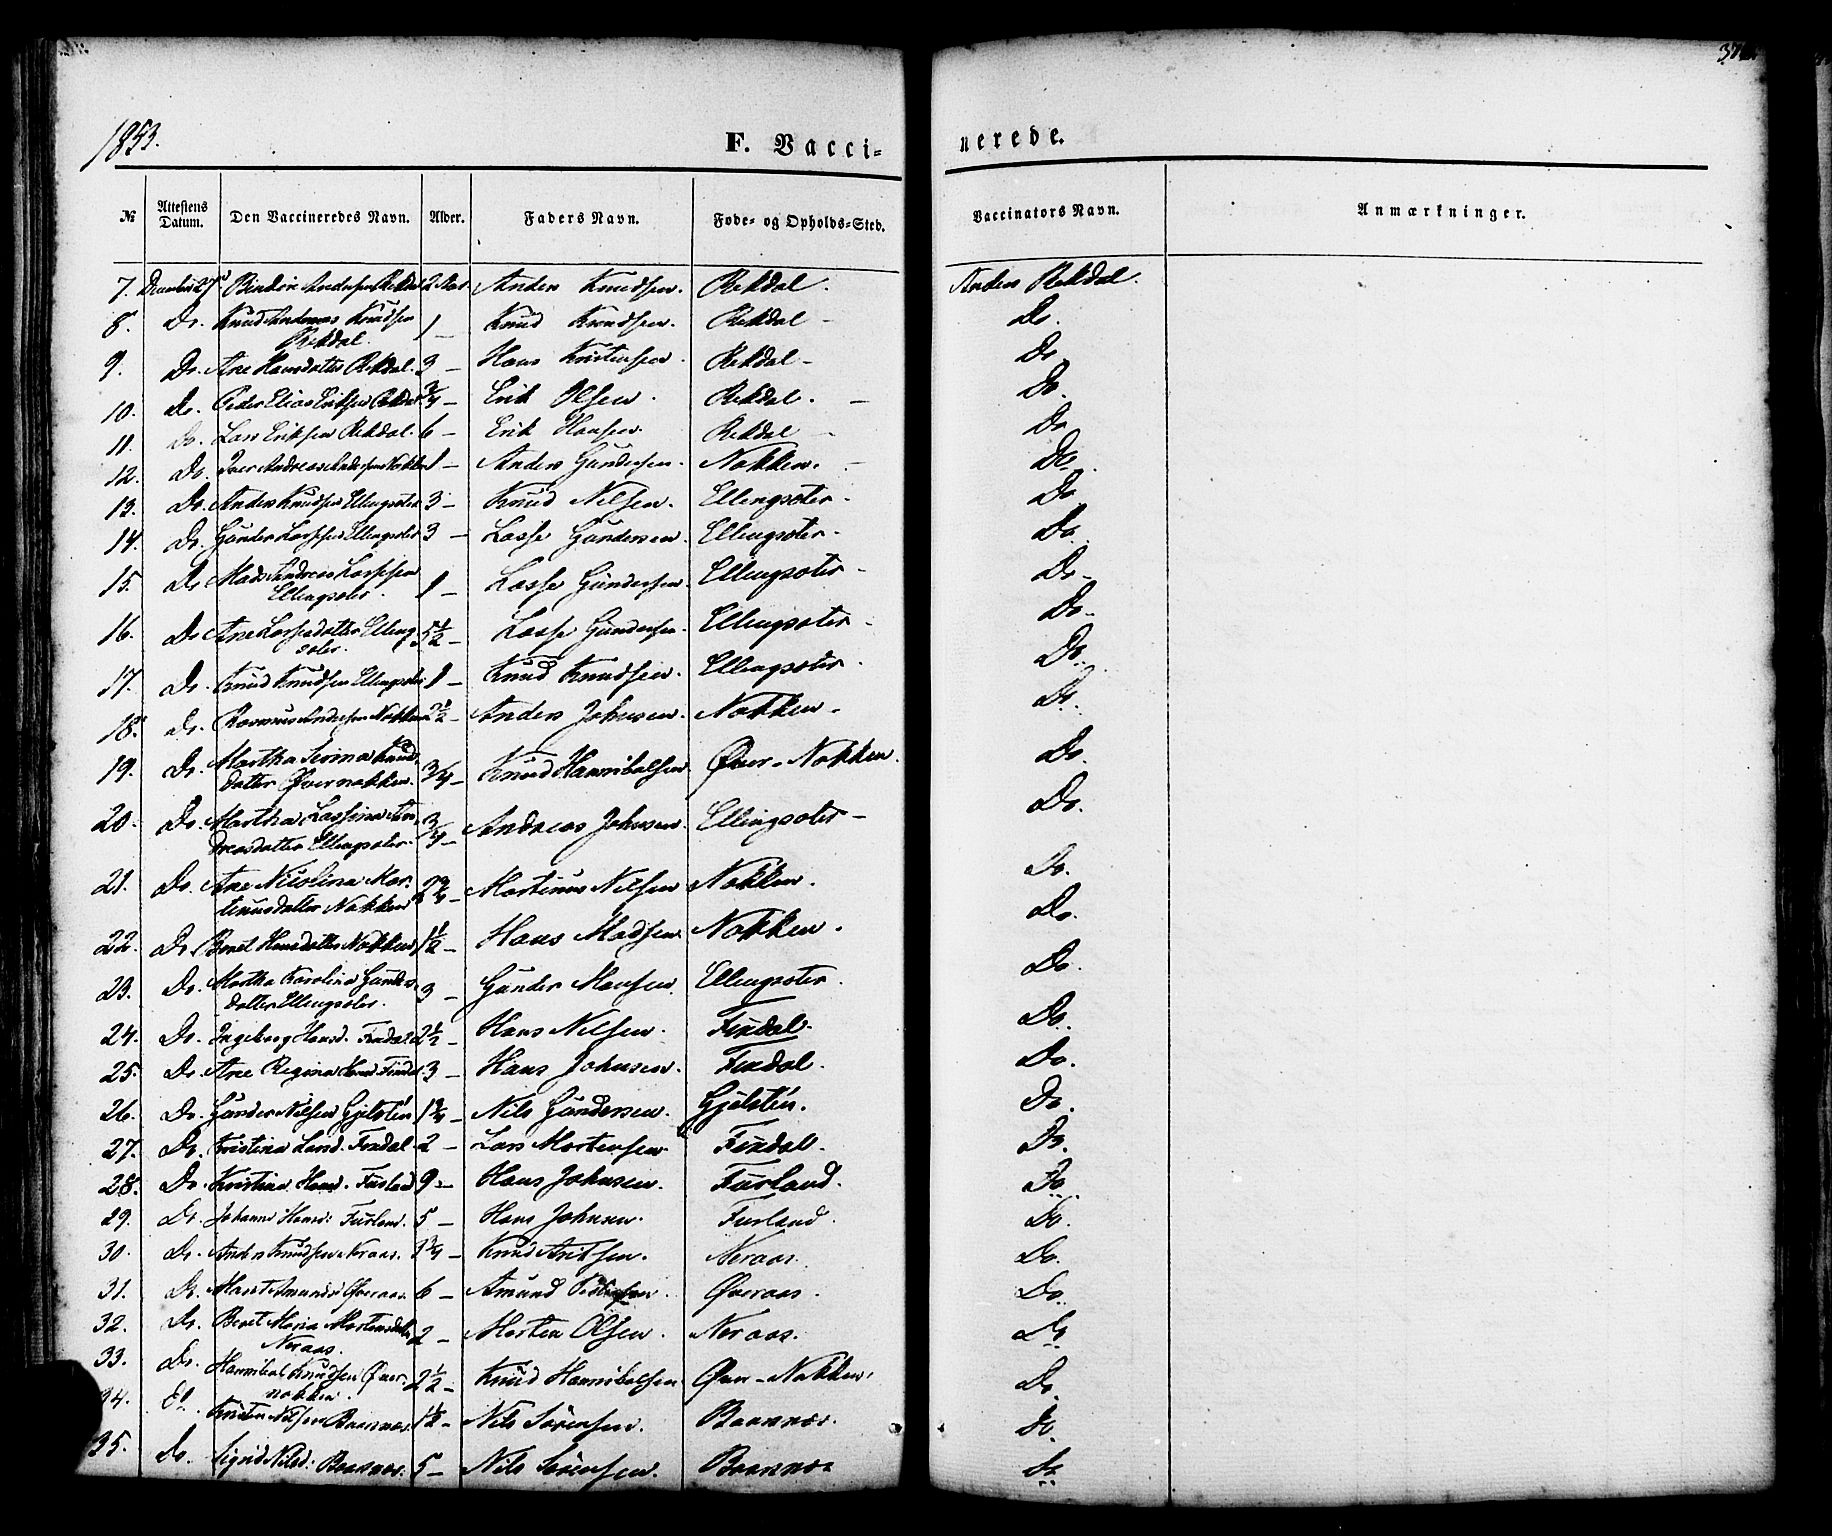 1853.
F. Vacci-
nerede.
№ Attestens Datum. Den Vaccineredes Navn. Alder. Faders Navn. Føde- og Opholds-Sted. Vaccinators Navn. Anmærkninger.
7. Rekdal 2 Aar. Anders Knudsen. Rekdal. Anders Rekdal.
8. Do. Knud Andreas Knudsen
Rekdal. 1 — Knud Knudsen. Rekdal — Do.
9. Do. Ane Hansdatter Rekdal. 3 — Hans Kristensen Rekdal — Do.
10. Do. Peder Elias Eriksen Rekdal 3/4 — Erik Olsen. Rekdal. — Do.
11. Do. Lars Eriksen Rekdal. 6 — Erik Hansen. Rekdal — Do.
12. Do. Iver Andreas Andersen Nakken 1 — Anders Gundersen. Nakken. — Do.
13. Do. Anders Knudsen Ellingsæter 3 — Knud Nilsen. Ellingsæter. Do.
14. Do. Gunder Lassesen Ellingsæter 3 — Lasse Gundersen. Ellingsæter. Do.
15. Do. Mads Andreas Lassesen
Ellingsæter. 1 — Lasse Gundersen. Ellingsæter — Do.
16. Do. Ane Lassedatter Elling
sæter. 5 1/2 — Lasse Gundersen. Ellingsæter — Do.
17. Do. Knud Knudsen Ellingsæter 1 — Knud Knudsen. Ellingsæter. Do.
18. Do. Rasmus Andersen Nakken 2 1/2 — Anders Johnsen. Nakken. Do.
19. Do. Martha Serina Knuds
datter Øvernakken. 3/4 — Knud Hannibalsen Øver-Nakken. Do.
20. Do. Martha Lassina An-
dreasdatter Ellingsæter. 3/4 — Andreas Johnsen. Ellingsæter — Do.
21. Do. Ane Nicolina Mar-
tinusdatter Nakken 2 3/4 — Martinus Nilsen Nakken. Do.
22. Do. Beret Hansdatter Nakken 1 1/2 — Hans Madsen. Nakken. Do.
23. Do. Martha Karolina Gunder
datter Ellingsæter. 3 — Gunder Hansen. Ellingsæter. Do.
24. Do. Ingeborg Hansd. Findal 2 1/2 — Hans Nilsen. Findal. Do.
25. Do. Ane Regina Hansd. Findal. 3 — Hans Johnsen. Findal. Do.
26. Do. Gunder Nilsen Gjelsten 1 3/4 — Nils Gundersen. Gjelsten. Do.
27. Do. Kristina Larsd. Findal. 2 — Lars Mortensen. Findal. Do.
28. Do. Kristina Hansd. Furland 9 — Hans Johnsen. Furland. Do.
29. Do. Johanne Hansd. Furland. 5 — Hans Johnsen. Furland. Do.
30. Do. Anders Knudsen Neraas. 1 3/4 — Knud Neraas. Do.
31. Do. Marit Amundsd. Øveraas. 6 — Amund Øveraas. Do.
32. Do. Beret Maria Mortensdatter
Neraas. 2 — Morten Olsen. Neraas. Do.
33. Do. Hannibal Knudsen Øver-
nakken. 2 1/2 — Knud Hannibalsen. Øver-Nakken. Do.
34. Nilsen Baasnæs. 1 1/2 — Nils Sørensen. Baasnæs. Do.
35. Do. Sigrid Nilsd. Baasnæs. 5 — Nils Sørensen. Baasnæs Do.